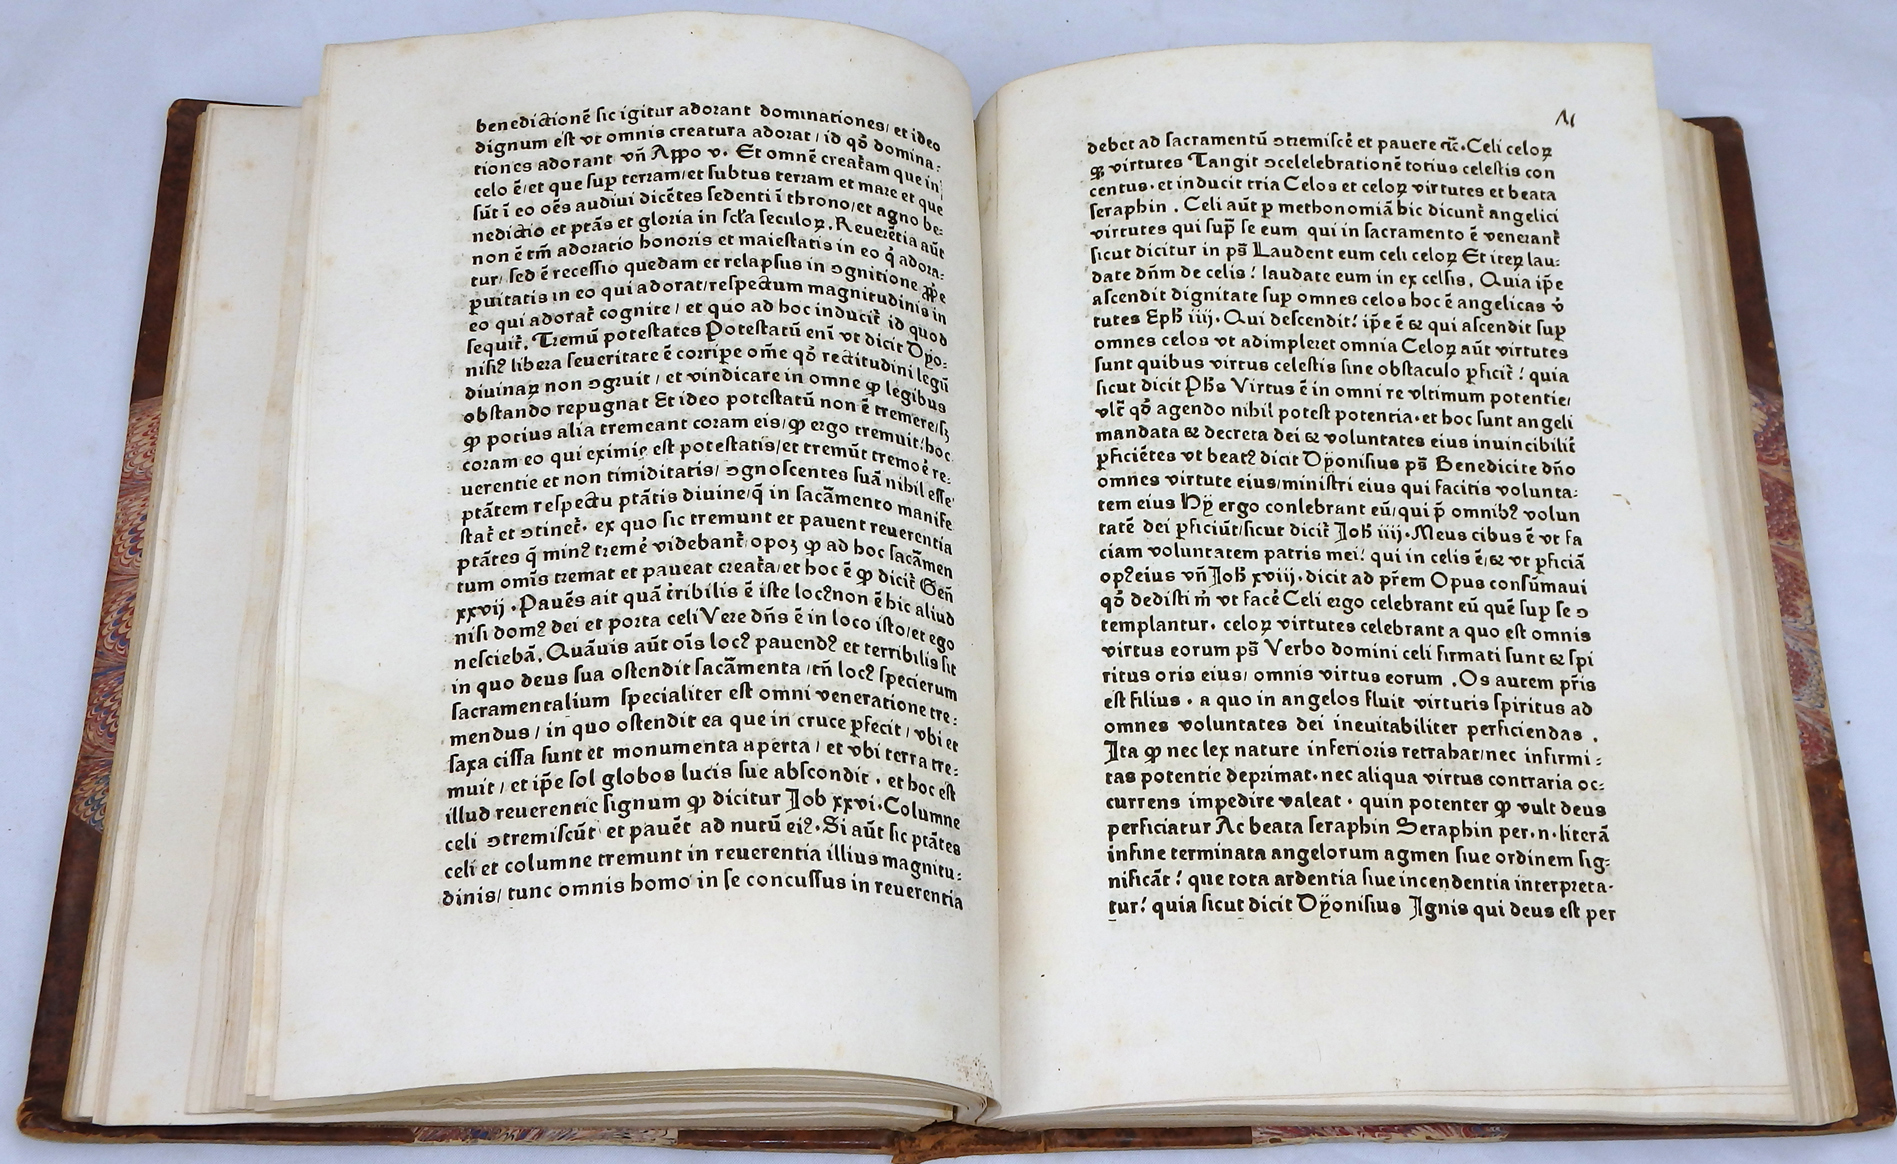 benedictionē sic igitur adorant dominationes/ et ideo
dignum est vt omnis creatura adorat/ id qđ domina:
tiones adorant vñ Appo v. Et omnē creatam que in
celo ē/et que sup terram/et subtus terram et mare et que
sūt ī eo oēs audiui dicētes sedenti ī throno/et agno be:
nedictio et ptās et gloria in scła seculoꝝ. Reuerētia aūt
non ē tm̄ adoratio honoris et maiestatis in eo q̇ adora:
tur/ sed ē recessio quedam et relapsus in ꝯgnitione ꝓpe
puitatis in eo qui adorat/respectum magnitudinis in
eo qui adorat̃ cognite/ et quo ad hoc inducit̃ id quod
sequit̃. Tremū potestates Potestatū enī vt dicit Dyo:
nisiꝰ libera seueritate ē corripe om̄e qđ rectitudini legū
diuinaꝝ non ꝯgruit/ et vindicare in omne ꝙ legibus
obstando repugnat Et ideo potestatū non ē tremere/sꝫ
ꝙ potius alia tremeant coram eis/ꝙ ergo tremuit/hoc
coram eo qui eximie est potestatis/et tremūt tremoē re:
uerentie et non timiditatis/ ꝯgnoscentes suā nihil esse
ptātem respectu ptātis diuine/q̄ in sacām̄ento manife
stat̃ et ꝯtinet̃. ex quo sic tremunt et pauent reuerentia
ptātes q̄ minꝰ tremē videbant̃/opoꝫ ꝙ ad hoc sacāmen
tum om̄is tremat et paueat creata/et hoc ē ꝙ dicit̃ Geñ
xxvij. Pauēs ait quā tribilis ē iste locꝰ non ē hic aliud
nisi domꝰ dei et porta celi Vere dñs ē in loco isto/et ego
nesciebā. Quāuis aūt oīs locꝰ pauendꝰ et terribilis sit
in quo deus sua ostendit sacāmenta/tñ locꝰ specierum
sacramentalium specialiter est omni veneratione tre:
mendus/ in quo ostendit ea que in cruce ꝑfecit/ vbi et
saxa cissa sunt et monumenta aperta/ et vbi terra tre:
muit/ et ip̄e sol globos lucis sue abscondit. et hoc est
illud reuerentie signum ꝙ dicitur Job xxvi. Columne
celi ꝯtremiscūt et pauēt ad nutū eiꝰ. Si aūt sic ptātes
celi et columne tremunt in reuerentia illius magnitu:
dinis/ tunc omnis homo in se concussus in reuerentia
debet ad sacramentū ꝯtremiscē et pauere ꝛc̄. Celi celoꝝ
qꝫ virtutes Tangit ꝯcelelebrationē totius celestis con
centus. et inducit tria Celos et celoꝝ virtutes et beata
seraphin. Celi aūt p methonomiā hic dicunt̃ angelici
virtutes qui sup̄ se eum qui in sacramento ē venerant̃
sicut dicitur in ps̄ Laudent eum celi celoꝝ Et iteꝝ lau:
date dñm de celis! laudate eum in ex celsis. Quia ip̄e
ascendit dignitate sup omnes celos hoc ē angelicas v̇
tutes Epħ iiij. Qui descendit! ip̄e ē & qui ascendit sup
omnes celos vt adimpleret omnia Celoꝝ aūt virtutes
sunt quibus virtus celestis sine obstaculo ꝑficit̃! quia
sicut dicit Pħs Virtus ē in omni re vltimum potentie/
vlt̃ qđ agendo nihil potest potentia. et hoc sunt angeli
mandata & decreta dei & voluntates eius inuincibilit̃
ꝑficiētes vt beatꝰ dicit Dyonisius ps̄ Benedicite dño
omnes virtute eius/ministri eius qui facitis volunta:
tem eius Hy ergo conlebrant eū/qui p̄ omnibꝰ volun
tatē dei ꝑficiūt/sicut dicit̃ Joħ iiij. Meus cibus ē vt fa
ciam voluntatem patris mei! qui in celis ē/& vt ꝑficiā
opꝰ eius vñ Joħ xviij. dicit ad p̄rem Opus consūmaui
qđ dedisti m̄ vt facē Celi ergo celebrant eū quē sup se ꝯ
templantur. celoꝝ virtutes celebrant a quo est omnis
virtus eorum ps̄ Verbo domini celi firmati sunt & spi
ritus oris eius/ omnis virtus eorum. Os autem p̄ris
est filius. a quo in angelos fluit virtutis spiritus ad
omnes voluntates dei ineuitabiliter perficiendas.
Ita ꝙ nec lex nature inferioris retrahat/nec infirmi:
tas potentie deprimat. nec aliqua virtus contraria oc:
currens impedire valeat. quin potenter ꝙ vult deus
perficiatur Ac beata seraphin Seraphin per.n.literā
infine terminata angelorum agmen siue ordinem sig:
nificāt! que tota ardentia siue incendentia interpreta:
tur! quia sicut dicit Dyonisius Ignis qui deus est per